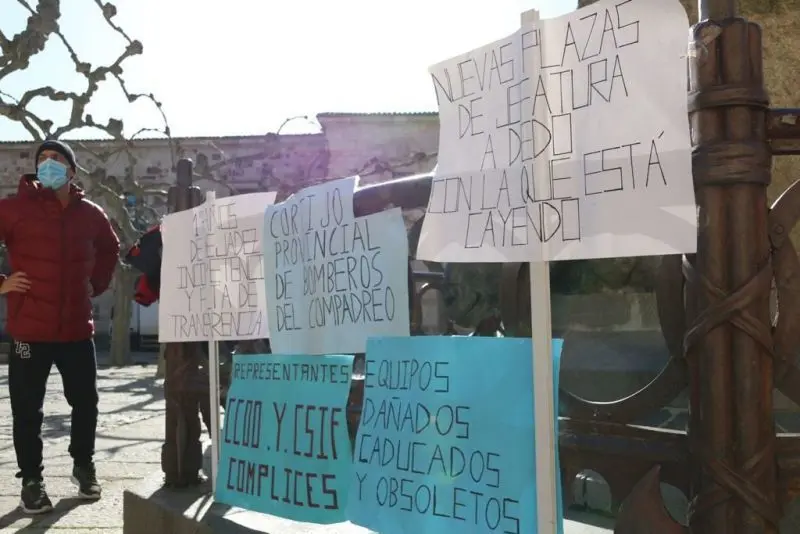 NUEVAS PLAZAS
DE JEFATURA
A DEDO
CON LA QUE ESTÁ
CAYENDO
DE
INCOMPETENCIA
Y FALTA DE
TRANSPARENCIA
CORTIJO
PROVINCIAL
DE BOMBEROS
DEL COMPADREO
REPRESENTANTES
CCOO.Y.CSIF
COMPLICES
EQUIPOS
DAÑADOS
CADUCADOS
Y OBSOLETOS
72